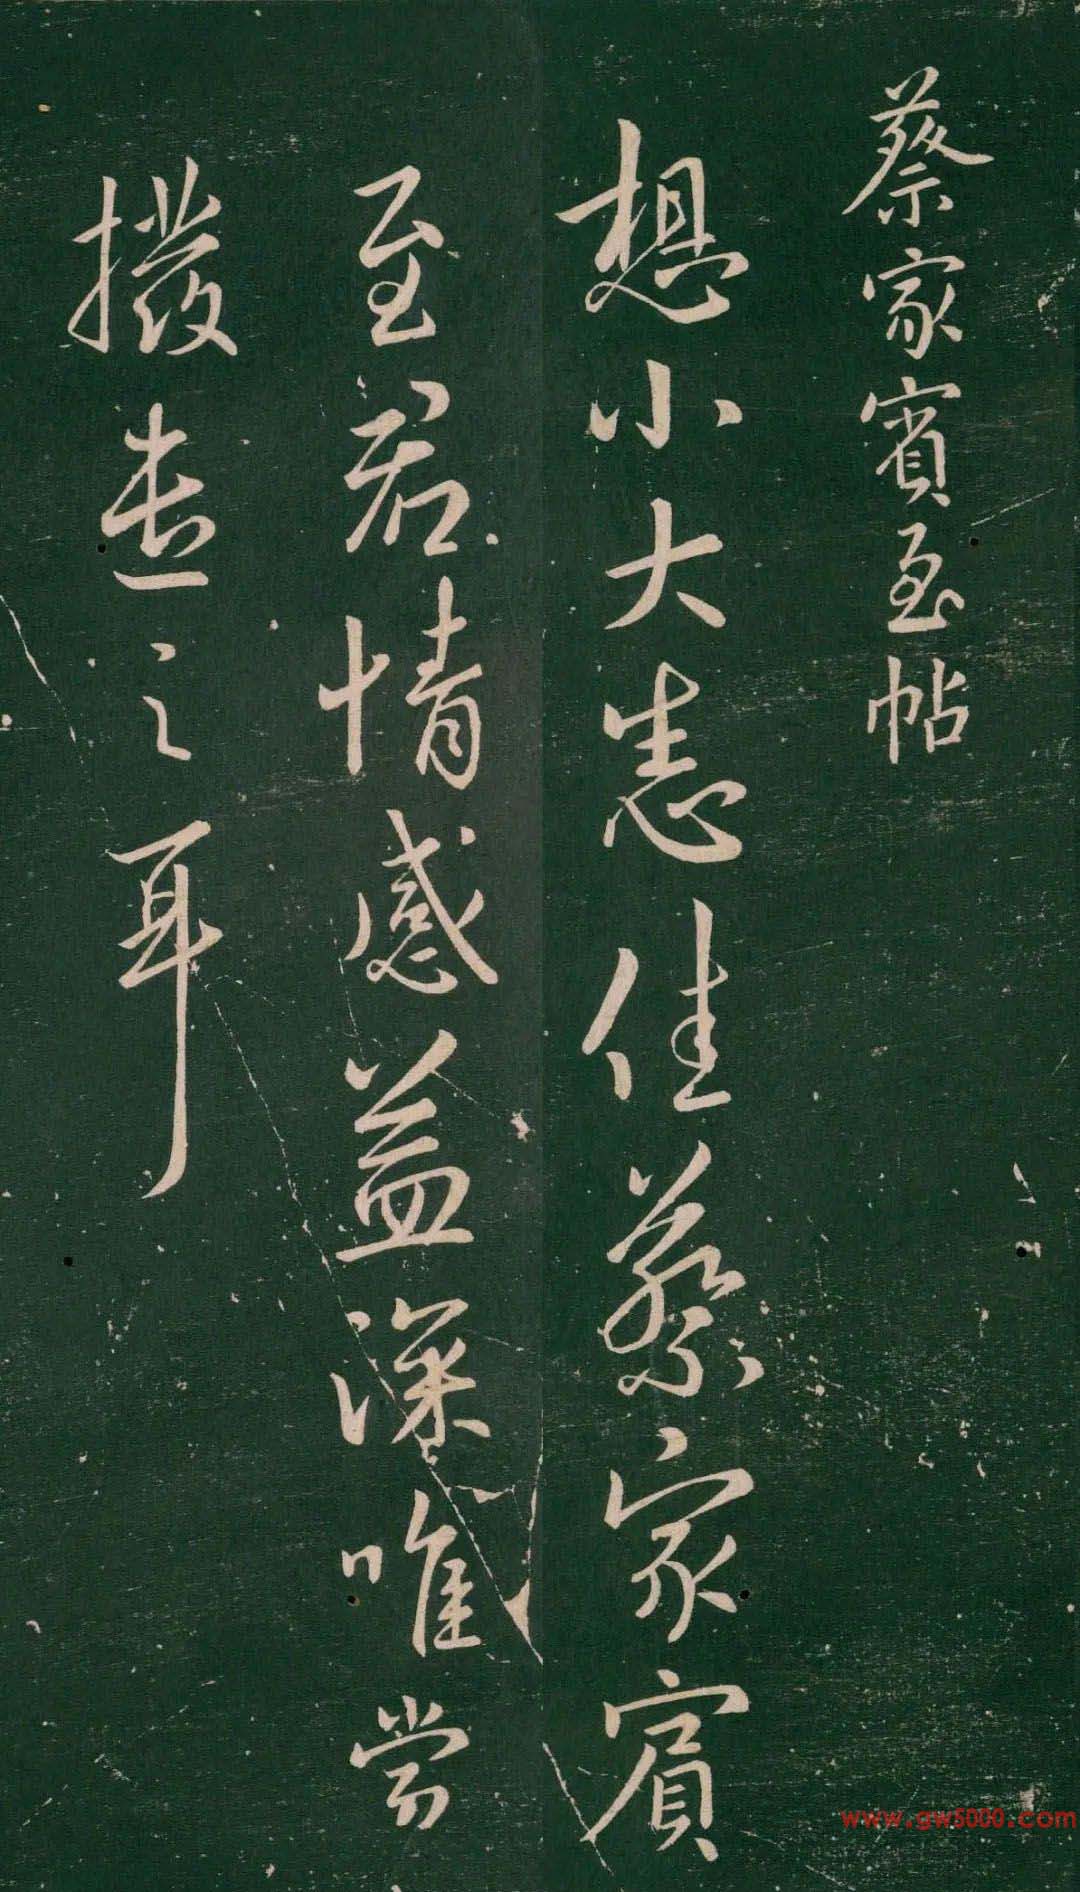 蔡家賓至帖
想小大悉佳蔡家賓
至君情感益深唯當
撥遣之耳
www.gw5000.com